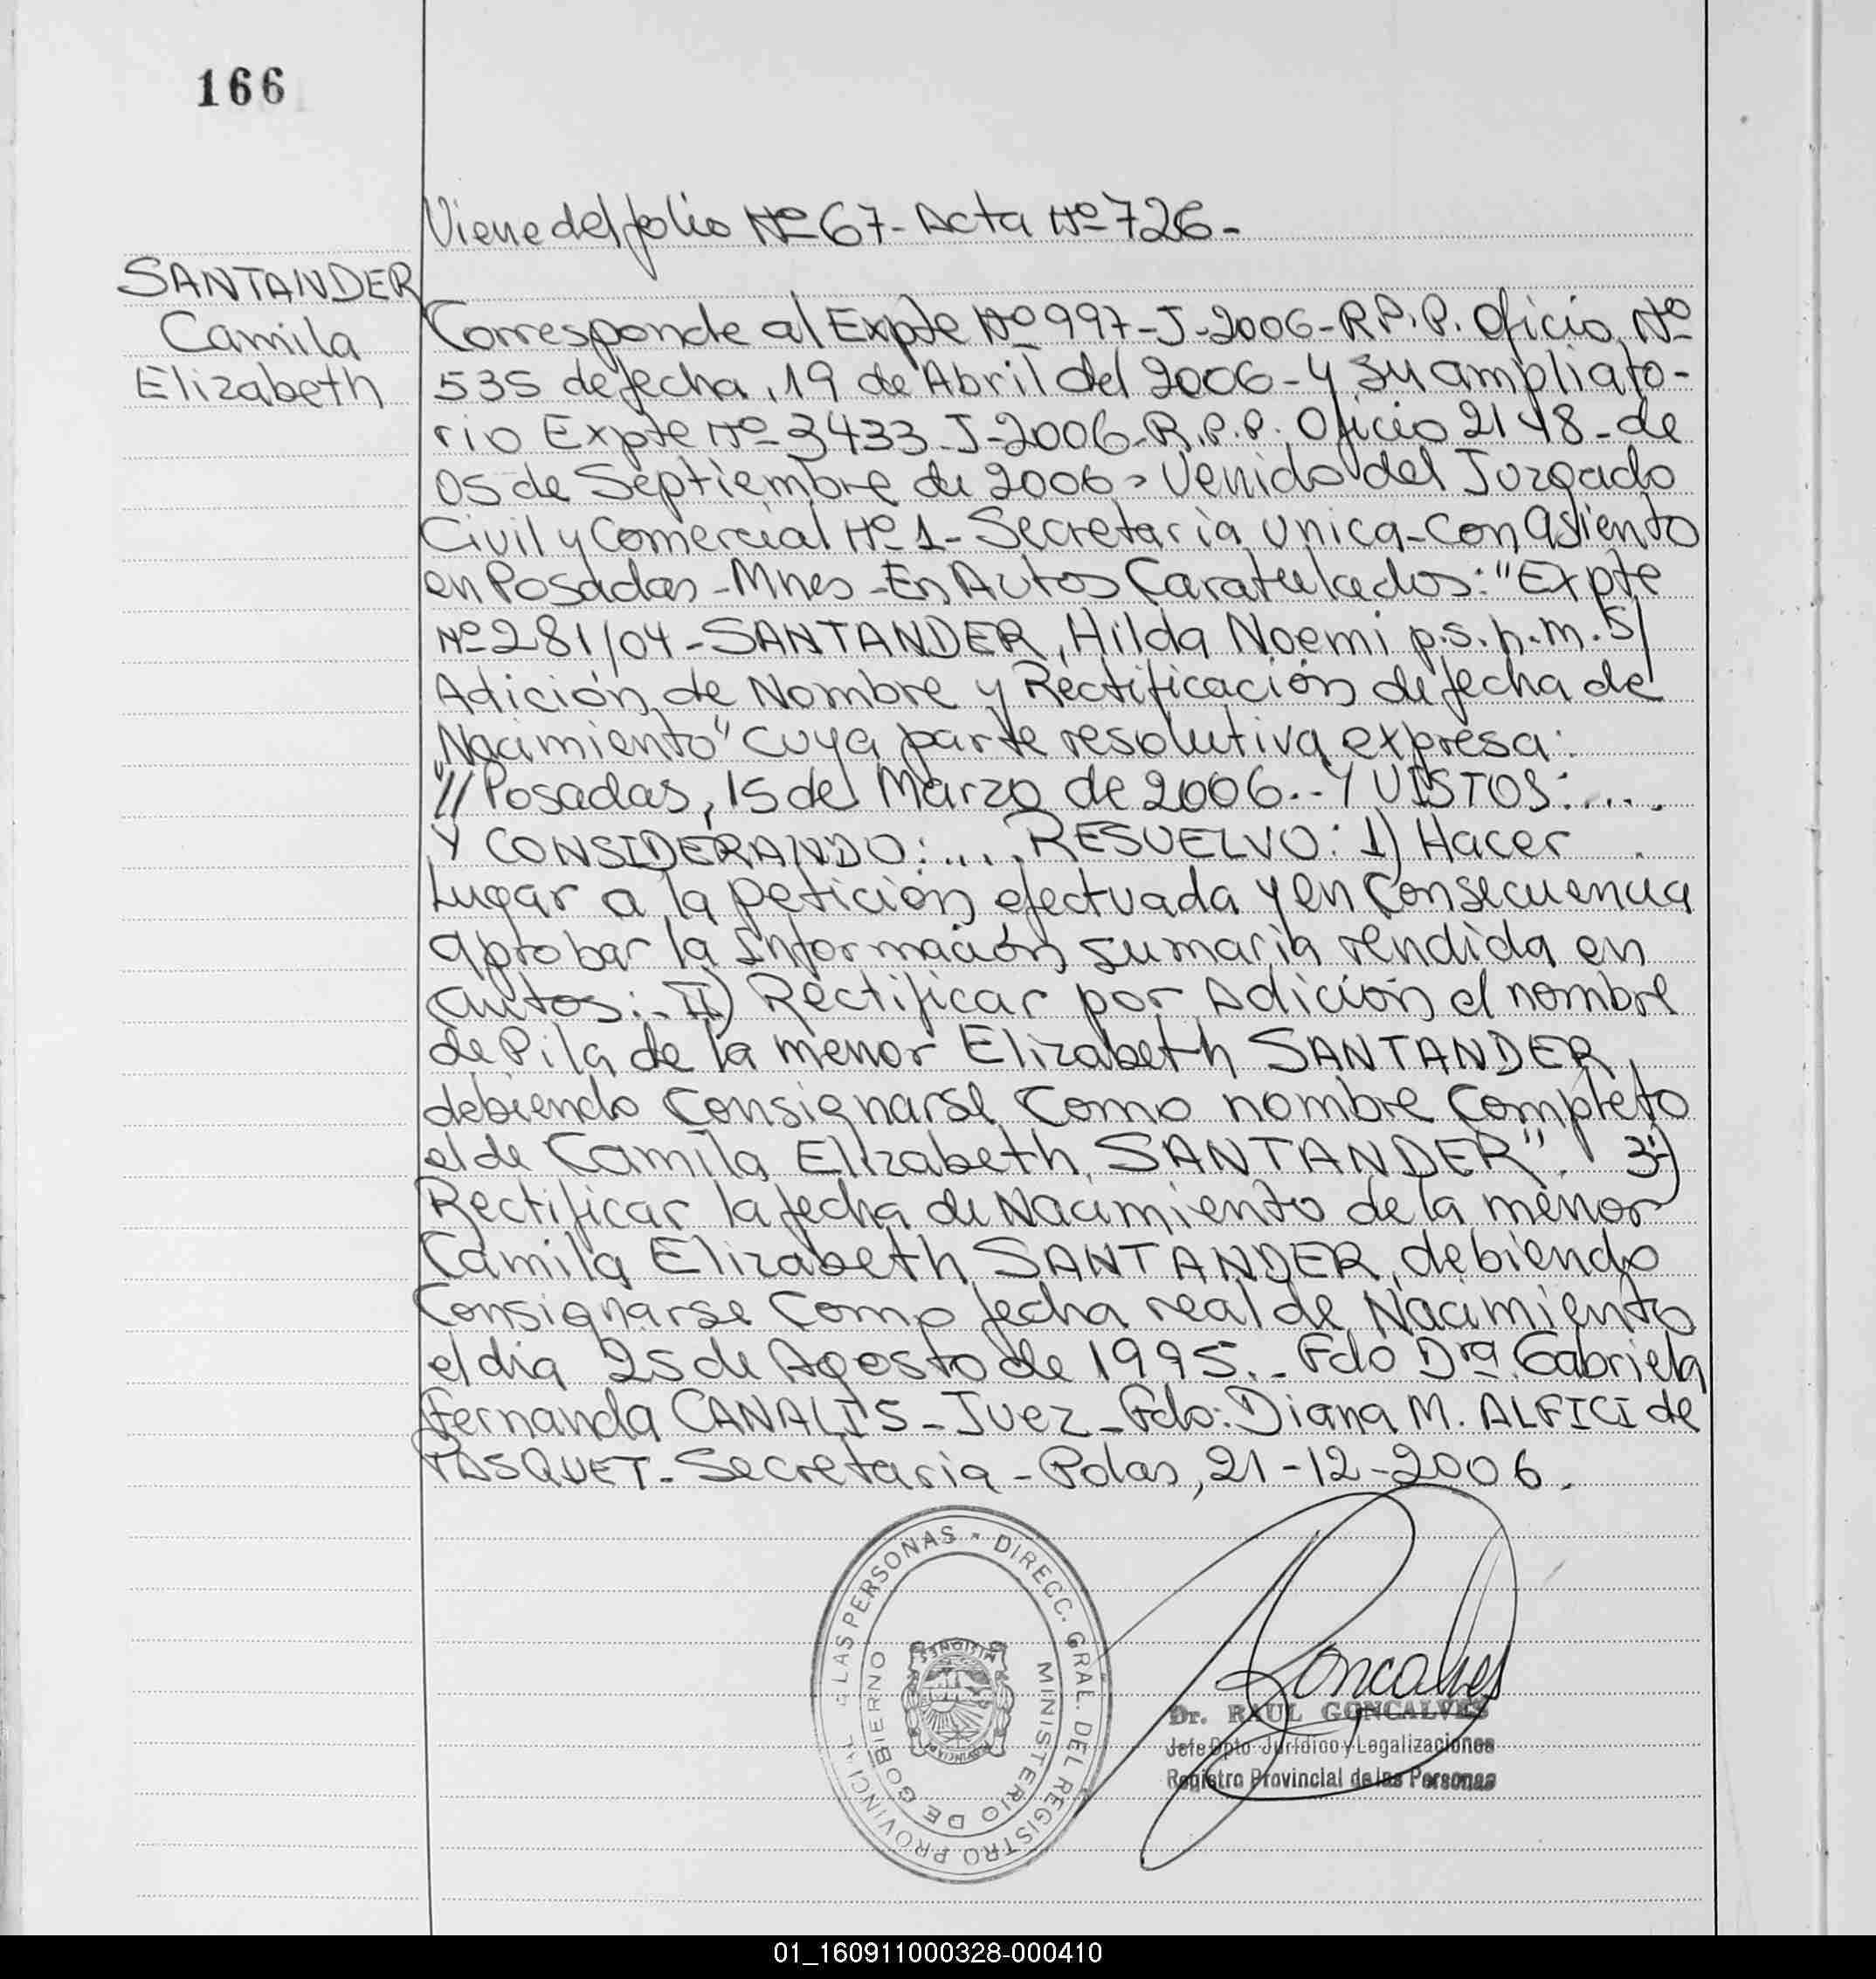 166
Viene del folio Nº 67- Acta Nº 726-
SANTANDER
Camila
Elizabeth
Corresponde al Expte Nº 997-J-2006-R.P.P. Oficio Nº
535 de fecha, 19 de Abril del 2006-y su ampliato-
rio Expte Nº 3433-J-2006-R.P.P. Oficio 2148-de
05 de Septiembre de 2006- Venido del Juzgado
Civil y Comercial Nº 1- Secretaria Unica-Con asiento
en Posadas-Mnes-En Autos Caratulados: "Expte
Nº 281/04-SANTANDER, Hilda Noemi p.s.h.m. S/
Adición de Nombre y Rectificación de fecha de
Nacimiento" cuya parte resolutiva expresa:
"// Posadas, 15 de Marzo de 2006.-Y VISTOS:....
Y CONSIDERANDO:.... RESUELVO: 1) Hacer
Lugar a la petición efectuada y en Consecuencia
aprobar la Información sumaria rendida en
autos:- II) Rectificar por Adición el nombre
de Pila de la menor Elizabeth SANTANDER,
debiendo Consignarse Como nombre Completo
el de Camila Elizabeth SANTANDER". 3º)
Rectificar la fecha de Nacimiento de la menor
Camila Elizabeth SANTANDER, debiendo
Consignarse Como fecha real de Nacimiento
el dia 25 de Agosto de 1995.- Fdo Dra. Gabriela
Fernanda CANALIS-Juez-Fdo: Diana M. ALFICI de
PASQUET-Secretaria-Pdas, 21-12-2006.
DIRECC. GRAL. DEL REGISTRO PROVINCIAL DE LAS PERSONAS
MINISTERIO DE GOBIERNO
PROVINCIA DE MISIONES
Goncalves
Dr. RAUL GONCALVES
Jefe Dpto. Jurídico y Legalizaciones
Registro Provincial de las Personas
01_160911000328-000410